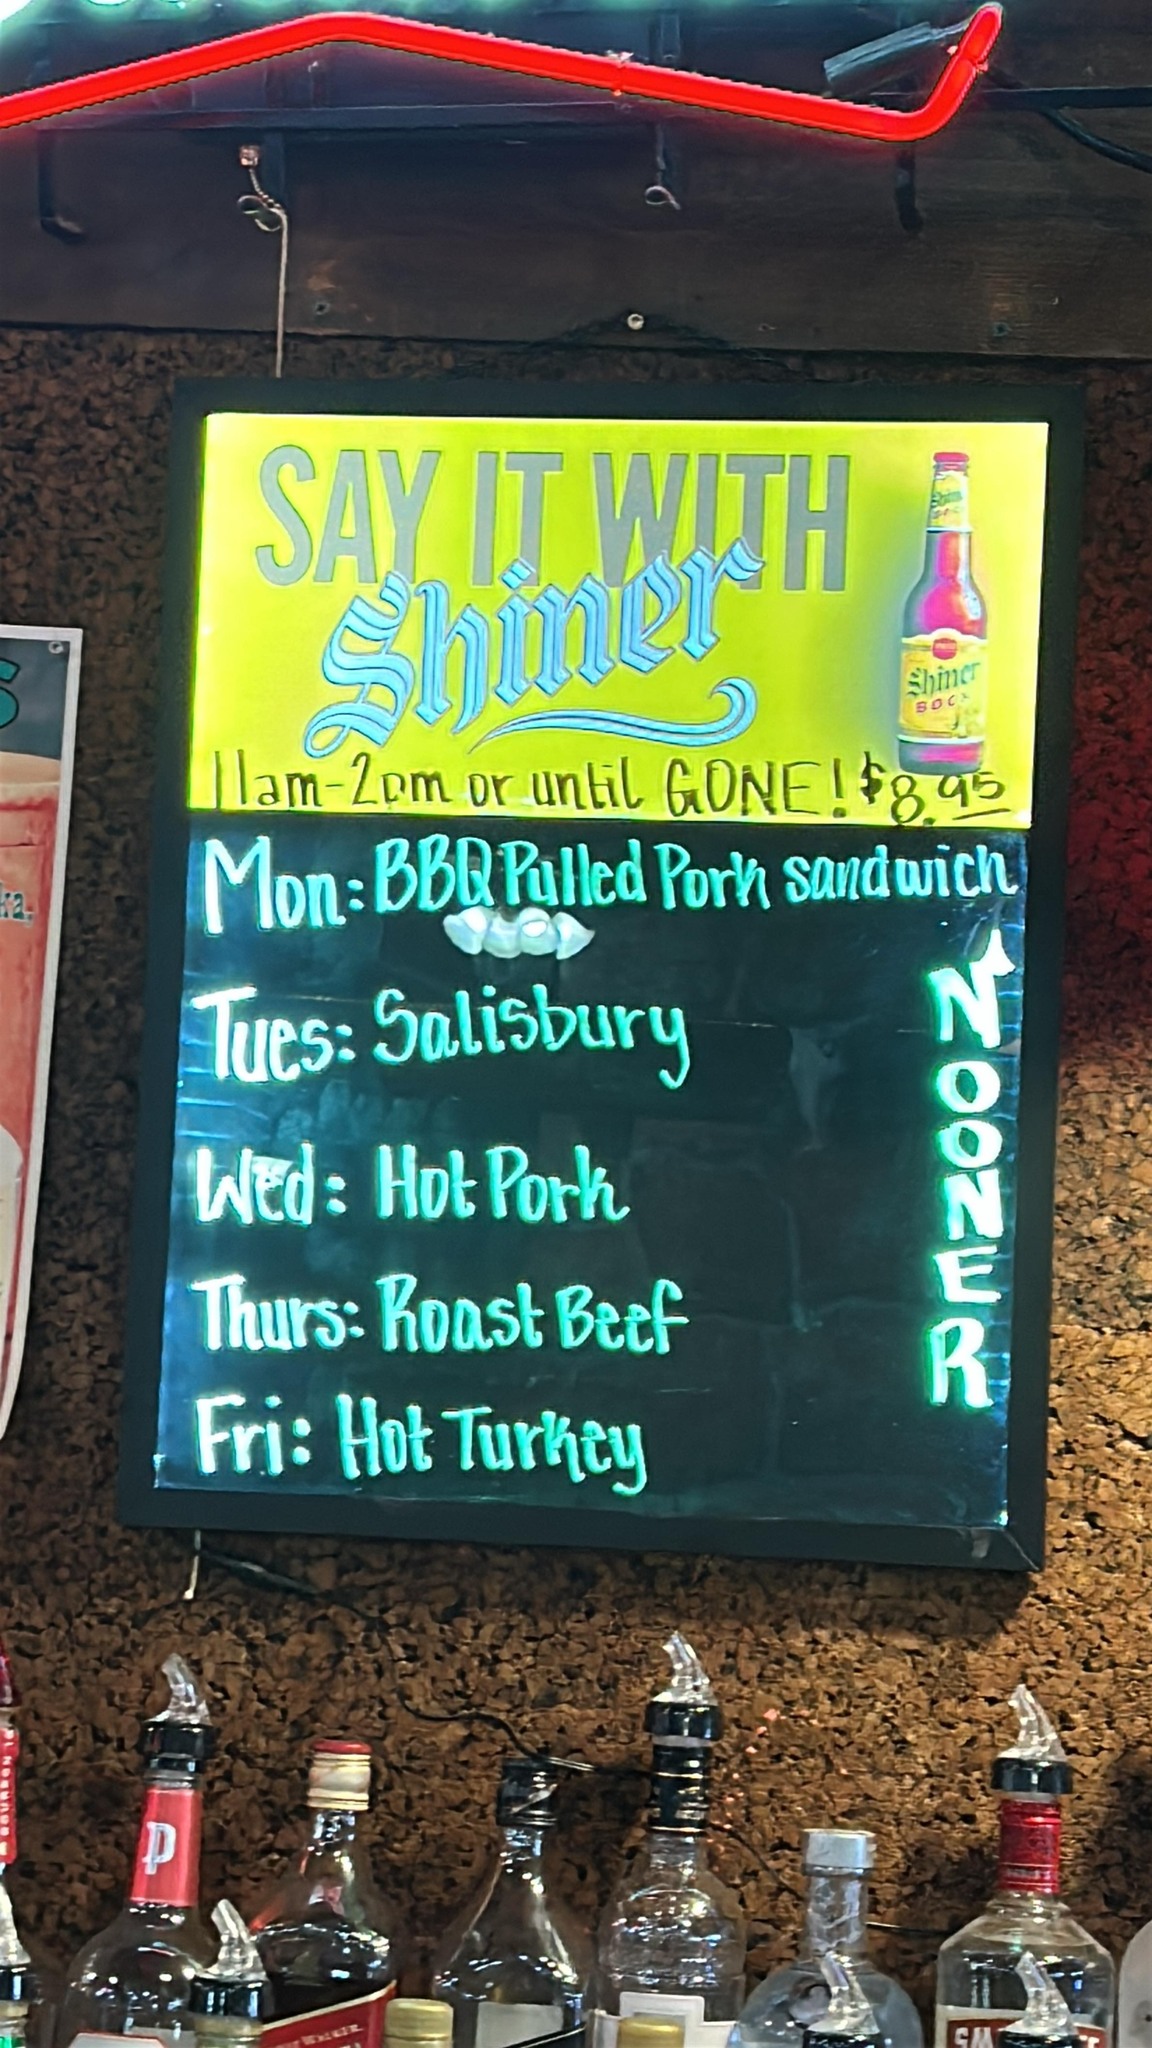 SAY IT WITH
Shiner
Shiner
BOCK
11am-2pm or until GONE! $8.95
Mon: BBQ Pulled Pork sandwich
Tues: Salisbury
Wed: Hot Pork
Thurs: Roast Beef
Fri: Hot Turkey
NOONER
ka.
BOURBON
P
WALKER